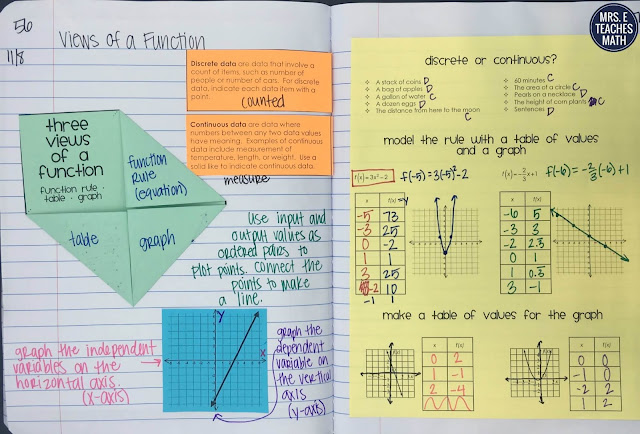 56
11/8
Views of a Function
Discrete data are data that involve a
count of items, such as number of
people or number of cars. For discrete
data, indicate each data item with a
point.
counted
Continuous data are data where
numbers between any two data values
have meaning. Examples of continuous
data include measurement of
temperature, length, or weight. Use a
solid line to indicate continuous data.
measure
three
views
of a
function
function rule ·
table · graph
function
Rule
(equation)
table
graph
Use input and
output values as
ordered pairs to
plot points. Connect the
points to make
a line.
graph the independent
variables on the
horizontal axis.
(x-axis)
y
x
graph the
dependent
variable on
the vertical
axis
(y-axis)
MRS. E
TEACHES
MATH
discrete or continuous?
A stack of coins D
A bag of apples D
A gallon of water C
A dozen eggs D
The distance from here to the moon
C
60 minutes C
The area of a circle C
Pearls on a necklace D
The height of corn plants C
Sentences D
model the rule with a table of values
and a graph
f(x) = 3x² - 2
f(-5) = 3(-5)² - 2
x f(x) = y
-5 73
-3 25
0 -2
1 1
3 25
-2 10
-1 1
f(x) = -2/3x + 1
f(-6) = -2/3(-6) + 1
x f(x)
-6 5
-3 3
-2 2.3
0 1
1 0.3
3 -1
make a table of values for the graph
f(x)
x
x f(x)
0 2
1 -1
2 -4
f(x)
x
x f(x)
0 0
-1 0
-2 2
1 2